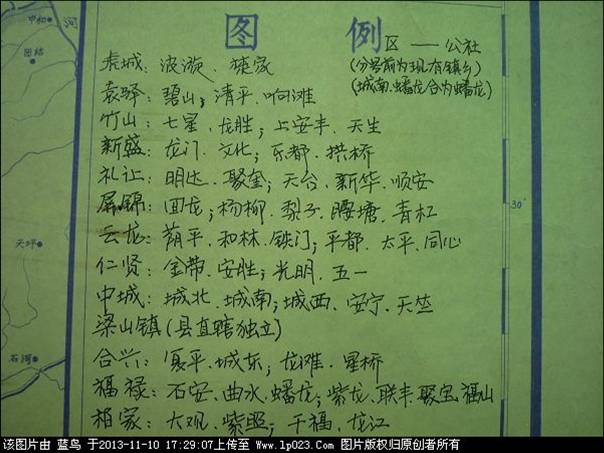 图 例
区 —— 公社
(分客前为现有镇乡)
(城南、蟠龙合为蟠龙)
虎城: 波漩、猫家
袁驿: 碧山; 清平、响滩
竹山: 七星、龙胜; 上安丰、天生
新盛: 龙门、文化; 乐都、拱桥
礼让: 明达、聚奎; 天台、新华、顺安
屏锦: 回龙; 杨柳、梨子、腰塘、青杠
云龙: 荫平、和林、铁门; 平都、太平、同心
仁贤: 金带、安胜; 光明、五一
中城: 城北、城南; 城西、安宁、天竺
梁山镇(县直辖独立)
合兴: 复平、城东; 龙滩、星桥
福禄: 石安、曲水、蟠龙; 紫龙、联丰、聚宝、福山
柏家: 大观、紫照; 千福、龙江
中和
河
团结
天坪
石河
30′
该图片由 蓝鸟 于2013-11-10 17:29:07上传至 Www.lp023.Com 图片版权归原创者所有